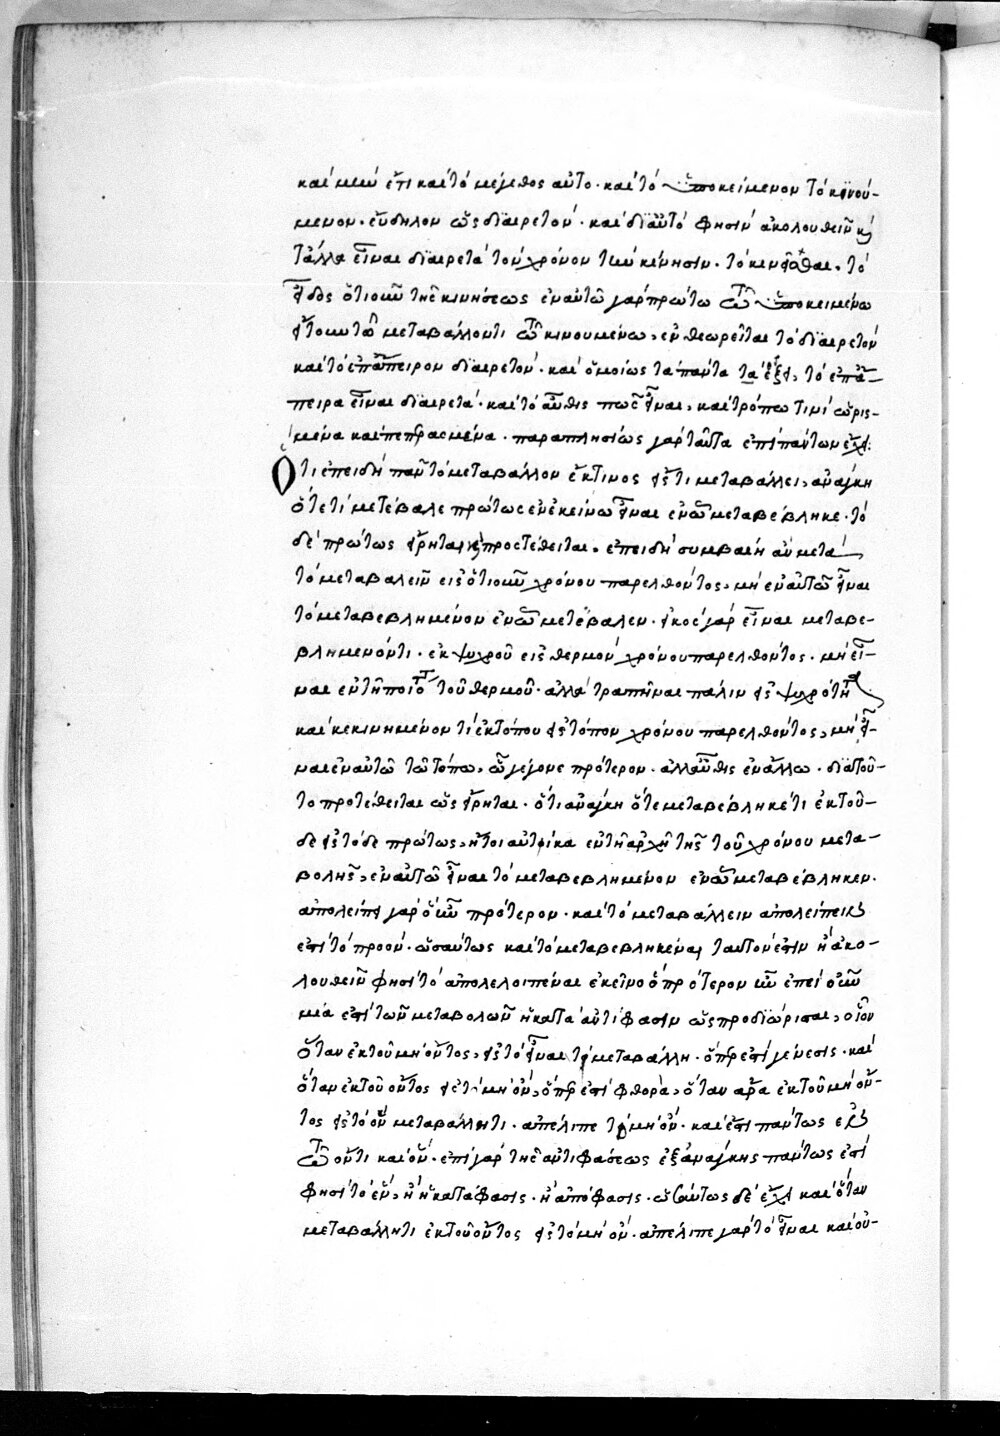 καὶ μὴν ἔτι καὶ τὸ μέγεθος αὐτὸ. καὶ τὸ ὑποκείμενον τὸ κινού-
μενον. εὔδηλον ὡς διαιρετόν. καὶ διαυτό φησιν ἀκολουθεῖν καὶ
τἄλλα εἶναι διαιρετὰ τὸν χρόνον τὴν κίνησιν. τὸ κινεῖσθαι. τὸ
εἶδος ὁτιοῦν τῆς κινήσεως ἐν αὐτῶ γὰρ πρώτω τῶ ὑποκειμένω
ἤτοιν τῶ μεταβάλλοντι τῶ κινουμένω, ἐνθεωρεῖται τὸ διαιρετὸν
καὶ τὸ ἐπάπειρον διαιρετόν. καὶ ὁμοίως τὰ πάντα τὰ ἑξῆς, τὸ ἐπά-
πειρα εἶναι διαιρετά. καὶ τὸ αὖθις πως εἶναι, καὶ τρόπω τινὶ ὡρισ-
μένα καὶ πεπερασμένα. παραπλησίως γὰρ ταῦτα ἐπὶ πάντων ἔχει.
Ὅτι ἐπειδὴ πᾶν τὸ μεταβάλλον ἔκ τινος εἴς τι μεταβάλλει, ἀνάγκη
ὅτε τὶ μετέβαλε πρώτως ἐν ἐκείνω εἶναι ἐν ὧ μεταβέβληκε. τὸ
δὲ πρώτως εἴρηται καὶ προστέθειται. ἐπειδὴ συμβαίη ἂν μετὰ
τὸ μεταβαλεῖν εἰς ὁτιοῦν χρόνου παρελθόντος, μὴ ἐν αὐτῶ εἶναι
τὸ μεταβεβλημένον ἐν ὧ μετέβαλεν. εἰκὸς γὰρ εἶναι μεταβε-
βλημένόν τι. ἐκ ψυχροῦ εἰς θερμὸν χρόνου παρελθόντος. μὴ εἶ-
ναι ἐν τῆ ποιότητι τοῦ θερμοῦ. ἀλλὰ τραπῆναι πάλιν εἰς ψυχρότητα
καὶ κεκινημένον τὶ ἐκ τόπου εἰς τόπον χρόνου παρελθόντος, μὴ εἶ-
ναι ἐν αὐτῶ τῶ τόπω, οὗ γέγονε πρότερον. ἀλλ' αὖθις ἐν ἄλλω. διὰ τοῦ-
το προτέθειται ὡς εἴρηται. ὅτι ἀνάγκη ὅτε μεταβέβληκέ τι ἐκ τοῦ-
δε εἰς τόδε πρώτως, ἤτοι αὐτίκα ἐν τῆ ἀρχῆ τῆς τοῦ χρόνου μετα-
βολῆς, ἐν αὐτῶ εἶναι τὸ μεταβεβλημένον ἐν ὧ μεταβέβληκεν.
ἀπολείπει γὰρ ὃ ἦν πρότερον. καὶ τὸ μεταβάλλειν ἀπολείπειν
ἐστὶ τὸ προόν. ὡσαύτως καὶ τὸ μεταβεβληκέναι ταυτόν ἐστιν ἢ ἀκο-
λουθεῖν φησὶ τὸ ἀπολελοιπέναι ἐκεῖνο ὃ πρότερον ἦν ἐπεὶ οὖν
μία ἐστὶ τῶν μεταβολῶν ἡ κατὰ ἀντίφασιν ὡς προδιώρισται, οἷον
ὅταν ἐκ τοῦ μὴ ὄντος, εἰς τὸ εἶναι τὶ μεταβάλλη. ὅπερ ἐστὶ γένεσις. καὶ
ὅταν ἐκ τοῦ ὄντος εἰς τὸ μὴ ὄν, ὅπερ ἐστὶ φθορά, ὅταν ἄρα ἐκ τοῦ μὴ ὄν-
τος εἰς τὸ ὂν μεταβάλλη τι. ἀπέλιπε τὸ μὴ ὄν. καὶ ἔστι πάντως ἐν
τῶ ὄντι καὶ ὄν. ἐπὶ γὰρ τῆς ἀντιφάσεως ἐξ ἀνάγκης πάντως ἐστὶ
φησὶ τὸ ἓν, ἢ ἡ κατάφασις. ἢ ἀπόφασις. ὡσαύτως δὲ ἔχει καὶ ὅταν
μεταβάλλη τι ἐκ τοῦ ὄντος εἰς τὸ μὴ ὄν. ἀπέλιπε γὰρ τὸ εἶναι καὶ οὐ-